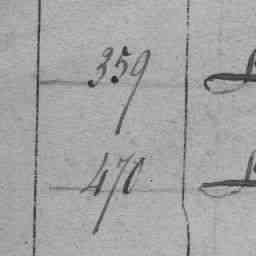 359
470